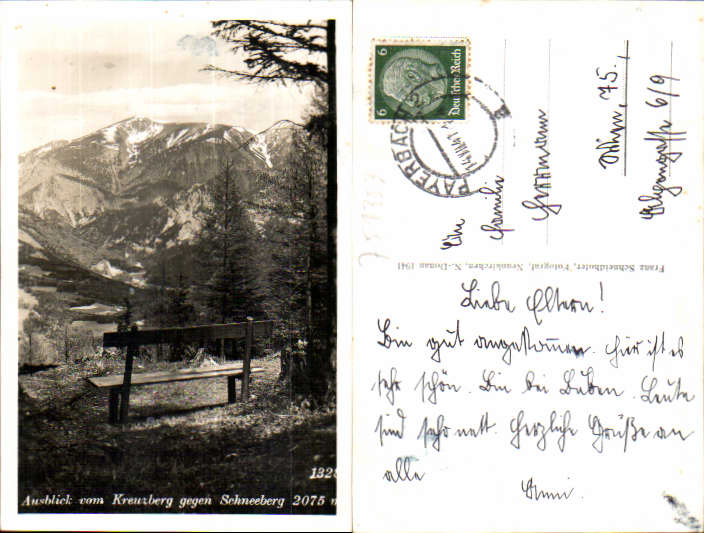 1328
Ausblick vom Kreuzberg gegen Schneeberg 2075 m
6 6
Deutsches Reich
PAYERBACH
An
Familie
Wien, 75.
6/9
Franz Schneidhofer, Fotograf, Neunkirchen, N.-Donau 1941
Liebe Eltern!
Bin gut angekommen. Hier ist es
sehr schön. Bin bei Buben. Leute
sind sehr nett. Herzliche Grüße an
alle
Anni.